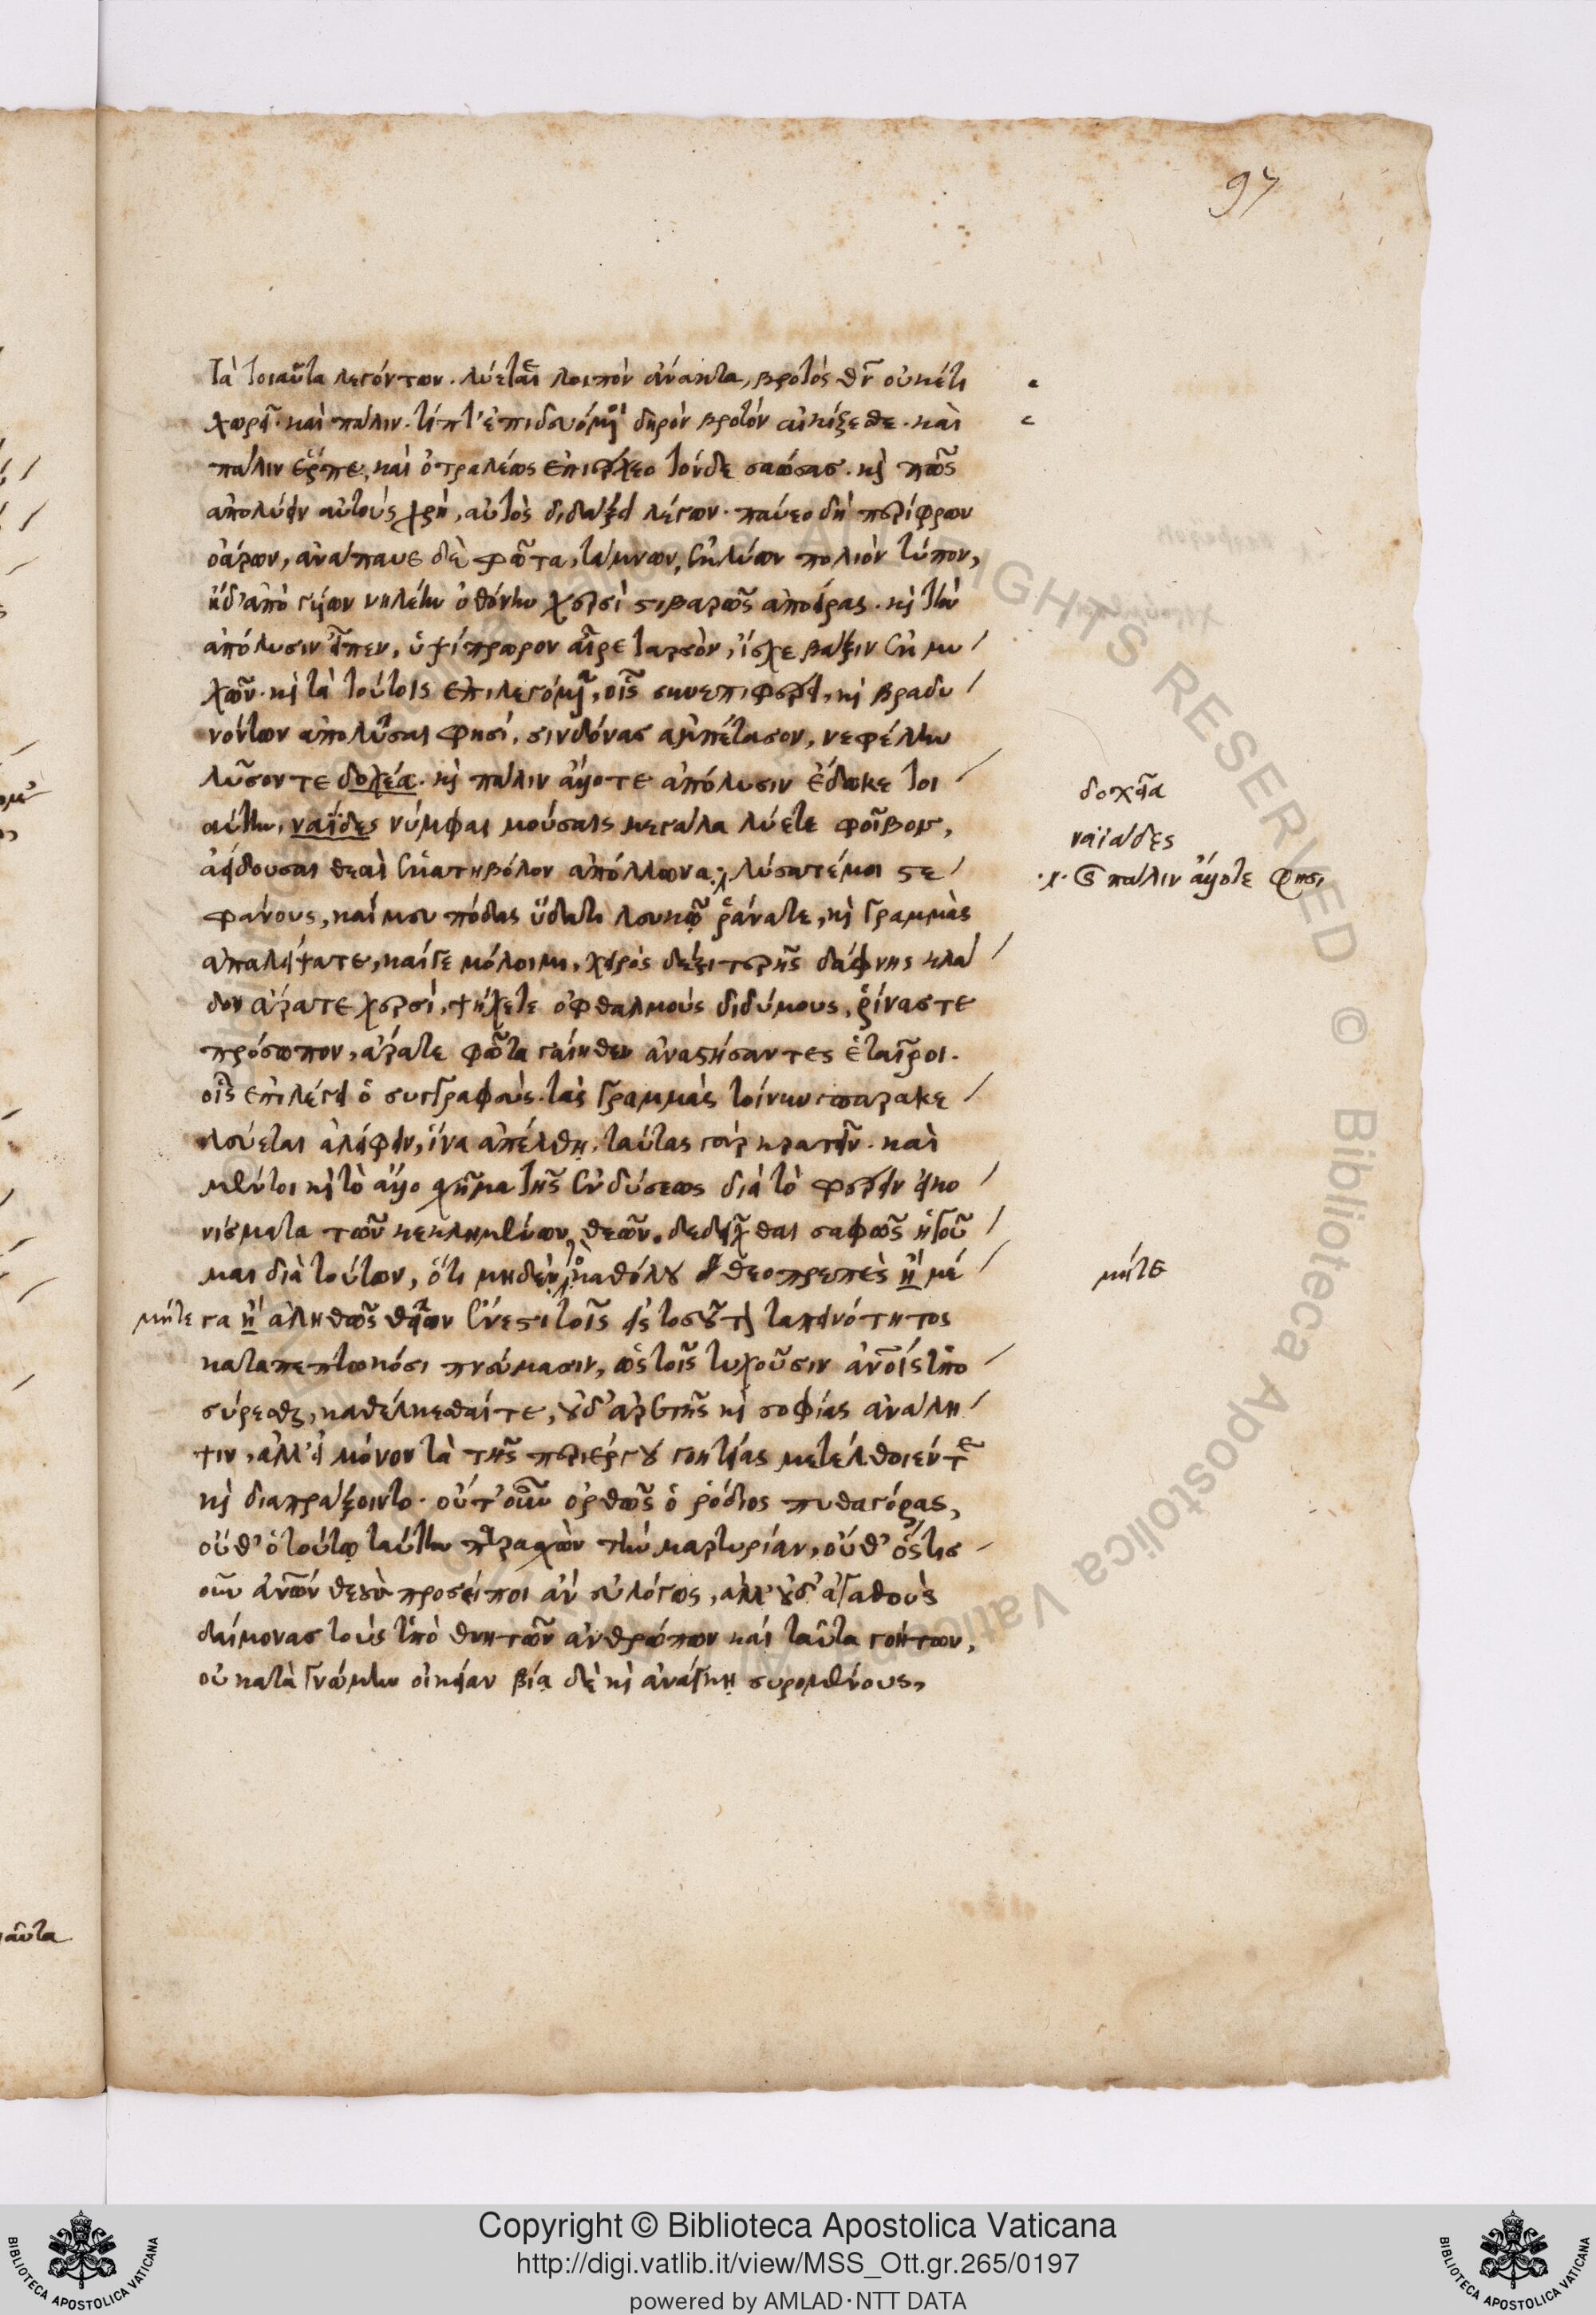 97
τὰ τοιαῦτα λεγόντων. λύεται λοιπὸν ἄνακτα, βροτὸς θεὸν οὐκέτι
χωρεῖ. καὶ πάλιν. τίπτ' ἐπιδευόμενοι δηρὸν βροτὸν αἰκίζεσθε. καὶ
πάλιν ἕρπε, καὶ ὀτραλέως ἐπέρχεο τόνδε σαώσας. καὶ πῶς
ἀπολύειν αὐτοὺς χρὴ, αὐτὸς διδάξει λέγων. παύεο δὴ περίφρων
ὀάρων, ἀνάπαυε δὲ φῶτα, τάμνων, ἐκλύων πολιὸν τύπον,
ἠδ' ἀπὸ γυίων νηλέην ὀθόνην χερσὶ στιβαρῶς ἀπάειρας. καὶ τὴν
ἀπόλυσιν εἶπεν, ὑψίπρωρον αἶρε ταρσὸν, ἴσχε βάξιν ἐκ μυ
χῶν. καὶ τὰ τούτοις ἐπιλεγόμενα, οἷς συνεπιφέρει, καὶ βραδυ
νόντων ἀπολῦσαι φησὶ, σινδόνας ἀμπέτασον, νεφέλην
λῦσον τε δοχέα. καὶ πάλιν ἄλλοτε ἀπόλυσιν ἔδωκε τοι
αύτην, ναΐδες νύμφαι μούσαις μεγάλα λύετε φοῖβον,
ἀείδουσαι θεαὶ ἑκατηβόλον ἀπόλλωνα. λύσατέ μοι στε
φάνους, καί μευ πόδας ὕδατι λευκῷ ῥάνατε, καὶ γραμμὰς
ἀπαλείψατε, καί γε μόλοιμι, χειρὸς δεξιτερῆς δάφνης κλά
δον ἄρατε χερσὶ, ψήχετε ὀφθαλμοὺς διδύμους, ῥῖνάς τε
πρόσωπον, ἄρατε φῶτα γαίηθεν ἀναστήσαντες ἑταῖροι.
οἷς ἐπιλέγει ὁ συγγραφεὺς. τὰς γραμμὰς τοίνυν παρακε
λεύεται ἀλείφειν, ἵνα ἀπέλθῃ. ταύτας γὰρ κρατεῖν. καὶ
μέντοι καὶ τὸ ἄλλο σχῆμα τῆς ἐνδύσεως διὰ τὸ φέρειν εἰκο
νίσματα τῶν κεκλημένων θεῶν. δεδεῖχθαι σαφῶς ἡγοῦ
μαι διὰ τούτων, ὅτι μηδὲν καθόλου θεοπρεπὲς ἢ μέ
μήτε γα ἢ ἀληθῶς θεῖον ἔνεστι τοῖς εἰς τοσοῦτον ταπεινότητος
καταπεπτωκόσι πνεύμασιν, ὡς τοῖς τυχοῦσιν ἀνθρώποις ὑπο
σύρεσθαι, καθέλκεσθαί τε, οὐδ' ἀρετῆς καὶ σοφίας ἀνάλη
ψιν, ἀλλ' εἰ μόνον τὰ τῆς περιέργου γοητείας μετέλθοιέν τε
καὶ διαπράξοιντο. οὔτ' οὖν ὀρθῶς ὁ ῥόδιος πυθαγόρας,
οὔθ' ὁ τούτῳ ταύτην παρασχὼν τὴν μαρτυρίαν, οὔθ' ὅστις
οὖν ἀνθρώπων θεοὺς προσείποι ἂν εὐλόγως, ἀλλ' οὐδ' ἀγαθοὺς
δαίμονας τοὺς ὑπὸ θνητῶν ἀνθρώπων καὶ ταῦτα γοήτων,
οὐ κατὰ γνώμην οἰκείαν βίᾳ δὲ καὶ ἀνάγκῃ συρομένους,
δοχεῖα
ναϊάδες
καὶ πάλιν ἄλλοτε φησι
μήτε
αῦτα
Copyright © Biblioteca Apostolica Vaticana
http://digi.vatlib.it/view/MSS_Ott.gr.265/0197
powered by AMLAD·NTT DATA
BIBLIOTECA APOSTOLICA VATICANA
BIBLIOTECA APOSTOLICA VATICANA